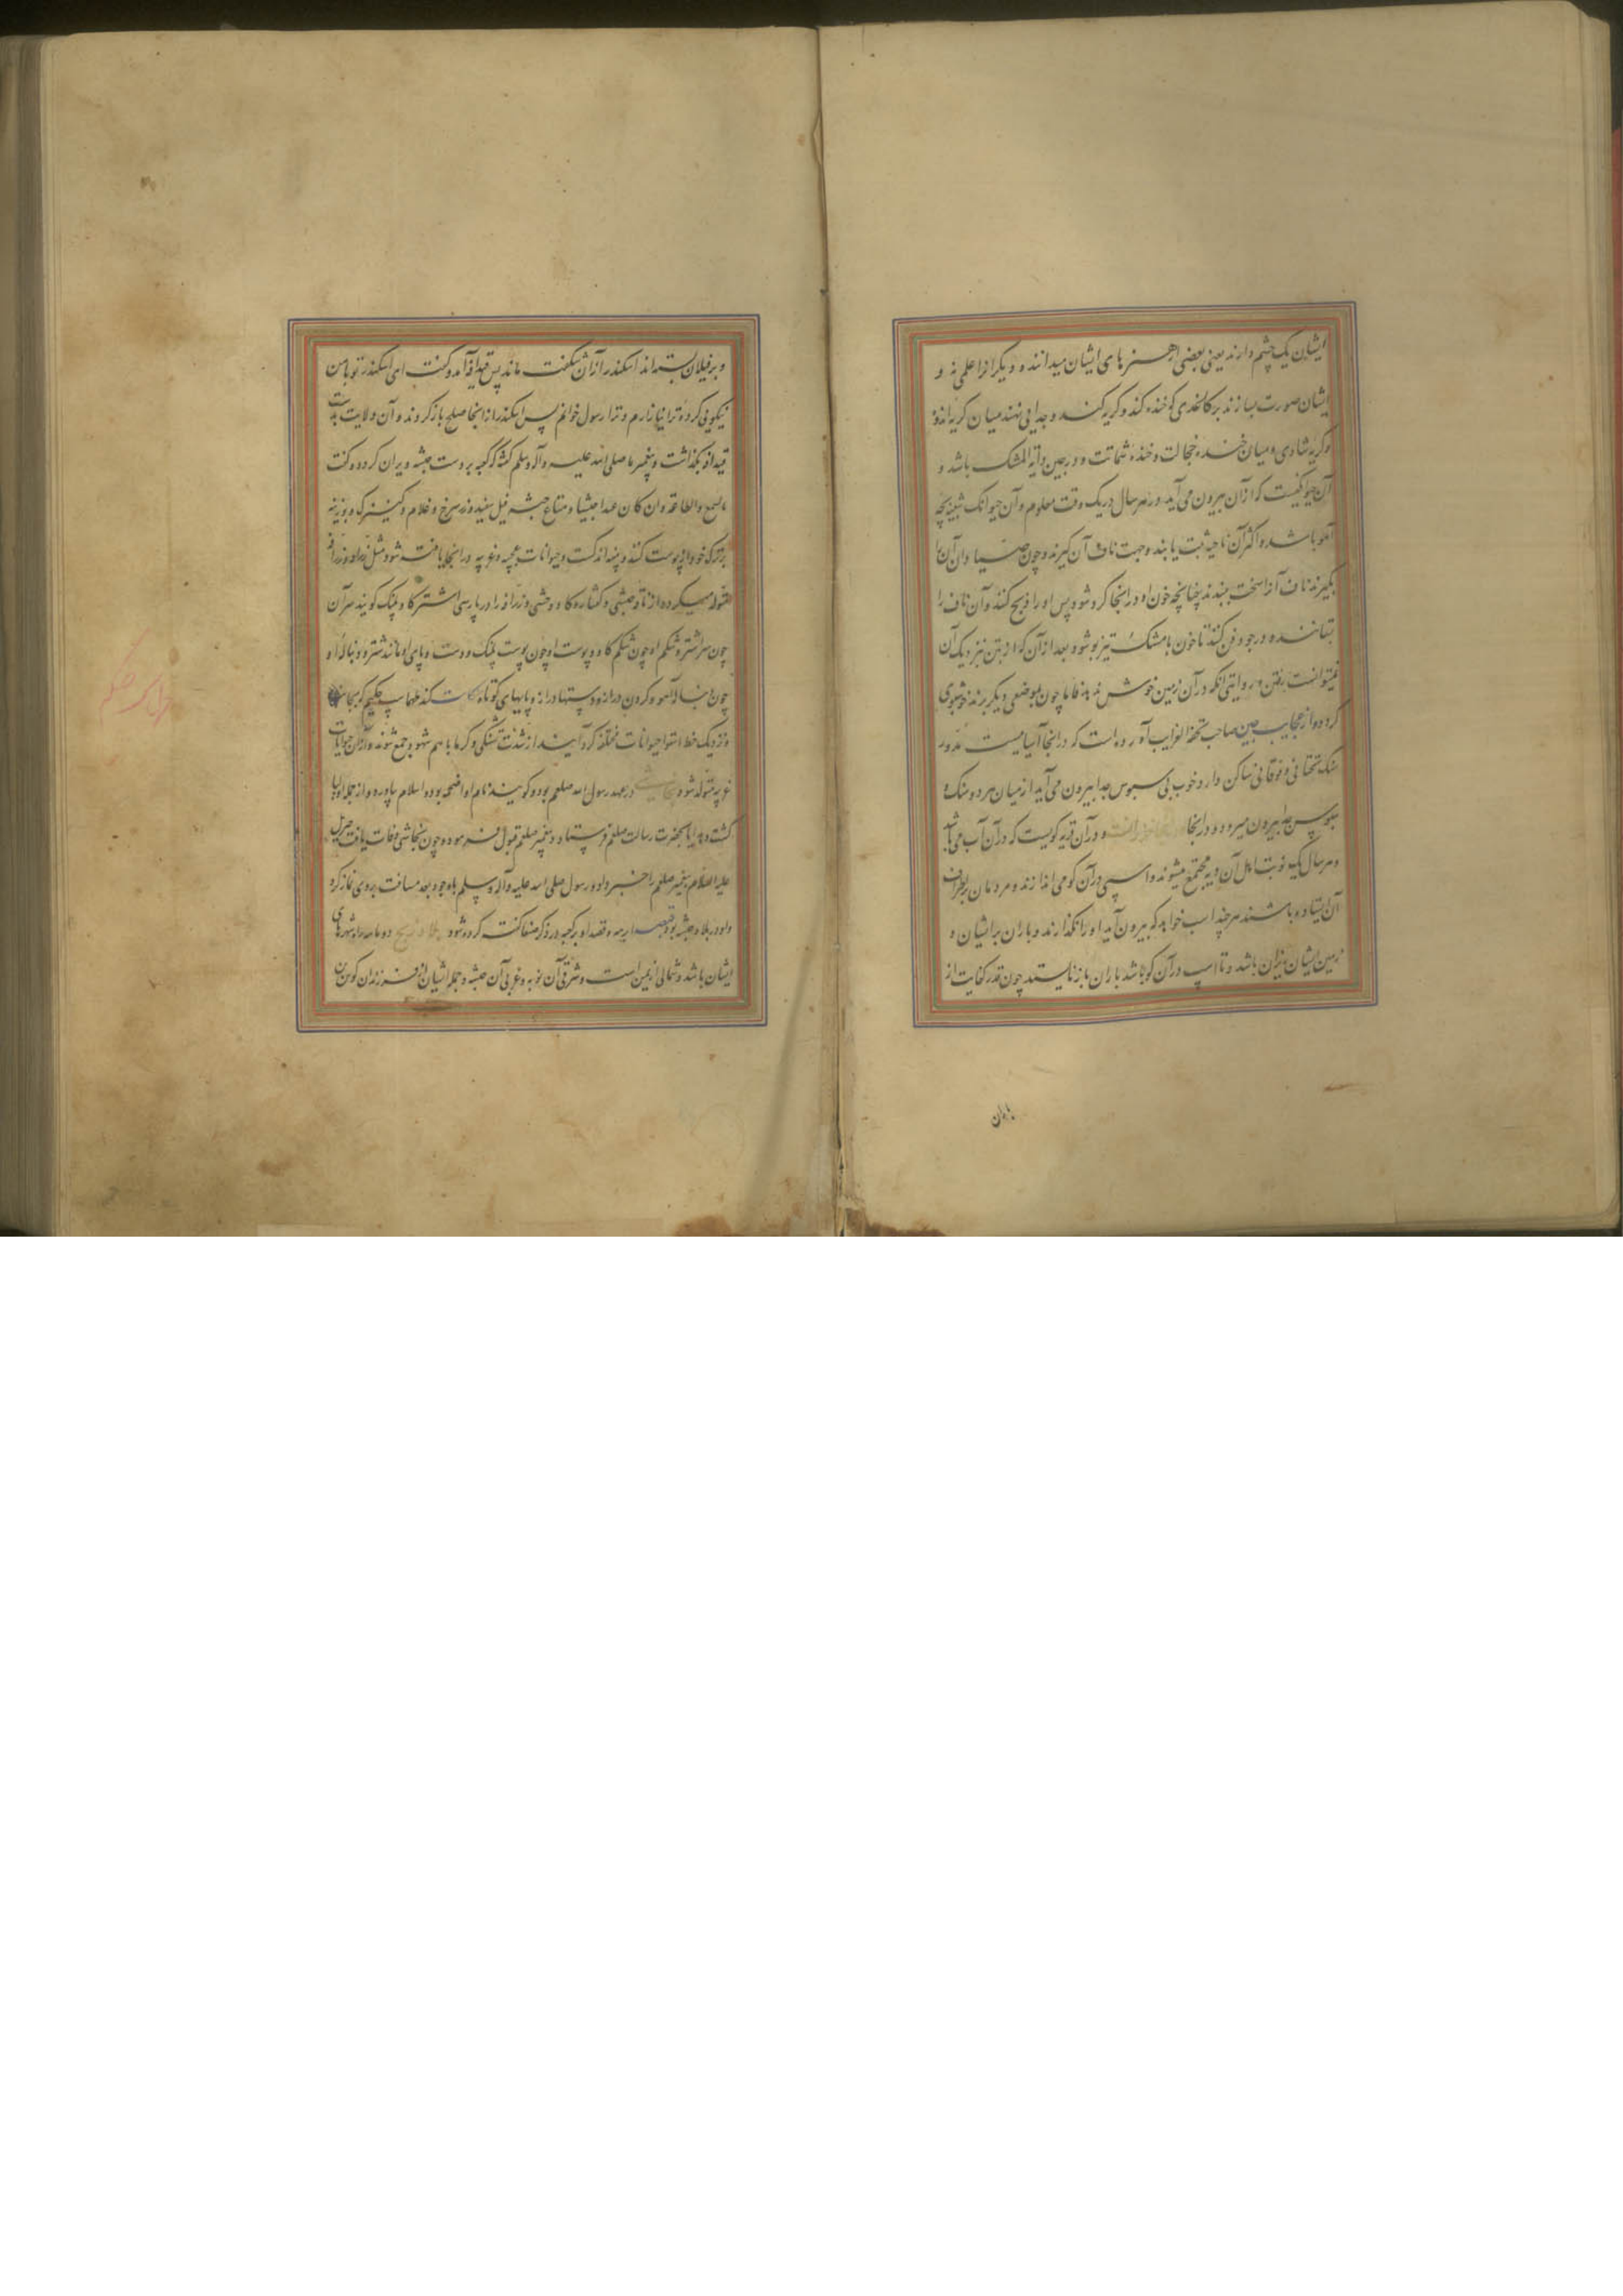 ایشان یک چشم دارند یعنی بعضی از هنرهای ایشان میدانند و دیگر انرا علمی نه و
ایشان صورت بسازند بر کاغذی کو خنده کند و کریه کند و جدایی نهند میان کریه اندوه
و کریه شادی و میان خنده خجالت و خنده شماتت و در چین دابة المشک باشد و
آن حیوانیست که از آن بیرون می آید در هر سال در یک وقت معلوم و آن حیوانک شبیه بچه
آهو باشد و اکثر آن ناحیه تبت یابند و جهت ناف آن کیرند و چون صیادان آن را
بکیرند ناف آنرا سخت ببندند چنانچه خون او در انجا کرد شود پس او را ذبح کنند و آن ناف را
بستانند و در جو دفن کنند تا خون با مشک تیز بو شود بعد از آن که از نتن نزدیک آن
نمیتوانست رفتن و روایتی انکه در آن زمین خوش ندهد فاما چون بموضعی دیکر برند خوشبوی
کردد و از عجایب چین صاحب تحفة الغرایب آورده است که در انجا آسیاییست مدور
سنک تحتانی و فوقانی ساکن دارد خوب بی سبوس جدا بیرون می آید از میان هر دو سنک و
سبوس جدا بیرون میرود و در انجا و در آن قریه کویست که در آن آب می باشد
و هر سال یک نوبت اهل آن دیه مجتمع میشوند و اسپی در آن کو می اندازند و مردمان بر اطراف
آن ایستاده باشند هر چند اسب خواهد که بیرون آید او را نکذارند و باران بر ایشان و
زمین ایشان ریزان باشد و تا اسپ در آن کو باشد باران باز نایستد چون قدر کفایت از
باران
و بر فیلان بسته اند اسکندر از آن شکفت ماند پس قیدافه آمد و کفت ای اسکندر تو با من
نیکویی کرده ترا نیازارم و ترا رسول خوانم پس اسکندر از انجا صلح باز کردند و آن ولایت بدست
قیدافه بکذاشت و پیغمبر ما صلی الله علیه و آله و سلم کفته که کعبه بر دست حبشه ویران کردد و کفت
السمع والطاعة وان کان عبدا حبشیا و متاع حبشه فیل سفید و زر سرخ و غلام و کنیزک و بوزینه
بزرک خود از پوست کنند و پنبه اندکست و حیوانات عجیبه و غریبه در انجا یافته شود مثل زرافه
متولد میکردد از ناقه حبشی و کفتار و کاو وحشی و زرافه را در پارسی اشتر کاو پلنک کویند سر آن
چون سر اشتر و شکم او چون شکم کاو و پوست او چون پوست پلنک و دست و پای او مانند شتر و دنباله او
چون آهو و کردن دراز و دستها دراز و پایهای کوتاه طیماسب حکیم کوید
نزدیک خط استوا حیوانات مختلفه کرد آیند از شدت تشنکی و کرما با هم شهوه جمع شوند و از آن حیوانات
غریبه متولد شود نجاشی در عهد رسول الله صلعم بود و کویند نام او اضحمه بود و اسلام بیاورد و از جمله اولیا
کشت و هدایا بحضرت رسالت صلعم فرستاد و پیغمبر صلعم قبول فرموده و چون نجاشی وفات یافت جبرئیل
علیه السلام پیغمبر صلعم را خبر داد و رسول صلی الله علیه و آله و سلم با وجود بعد مسافت بروی نماز کرد
و او در بلاد حبشه بود و قصه ابرهه و قصد او بر کعبه در ذکر صنعا کفته کرده شود بلاد زنج دو ماهه راه شهرهای
ایشان باشد و شمالی از یمن است و شرقی آن نوبه و غربی آن حبشه و جمله ایشان از فرزندان کوش بن